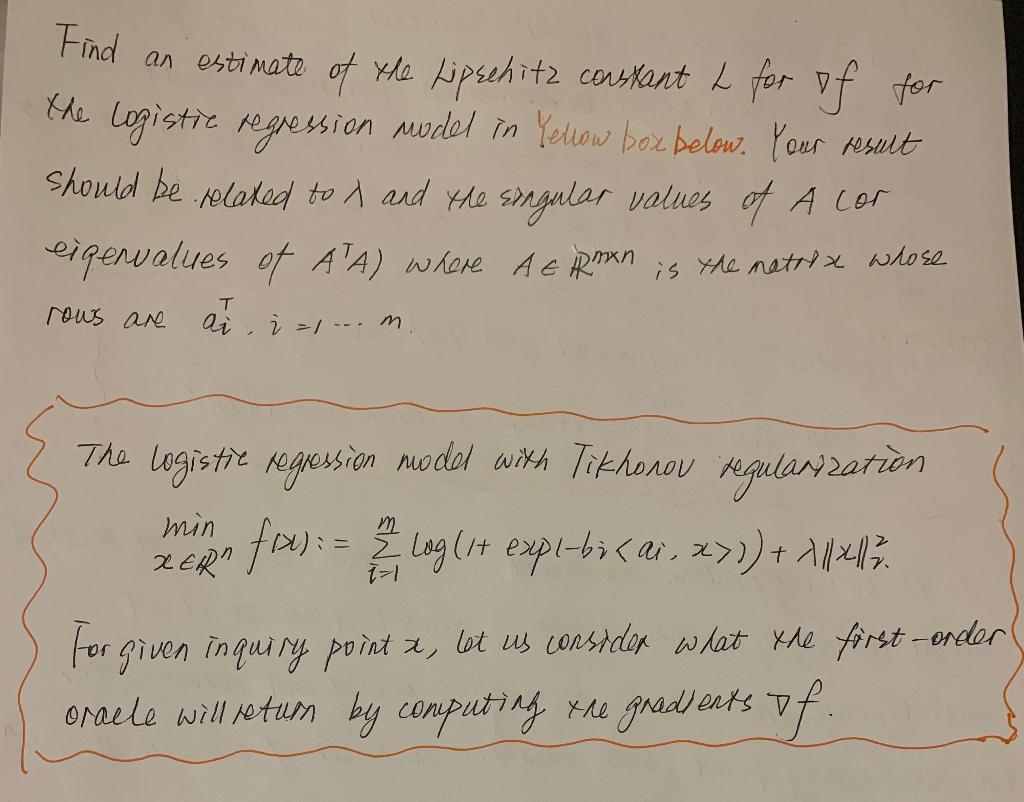 Find an estimate of the Lipschitz constant L for ∇f for
the logistic regression model in Yellow box below. Your result
should be related to λ and the singular values of A (or
eigenvalues of AᵀA) where A ∈ ℝᵐˣⁿ is the matrix whose
rows are aᵢᵀ, i=1 ... m.
The logistic regression model with Tikhonov regularization
min x∈ℝⁿ f(x) := Σᵢ₌₁ᵐ log(1+ exp(-bᵢ<aᵢ, x>)) + λ||x||₂².
For given inquiry point x, let us consider what the first-order
oracle will return by computing the gradients ∇f.